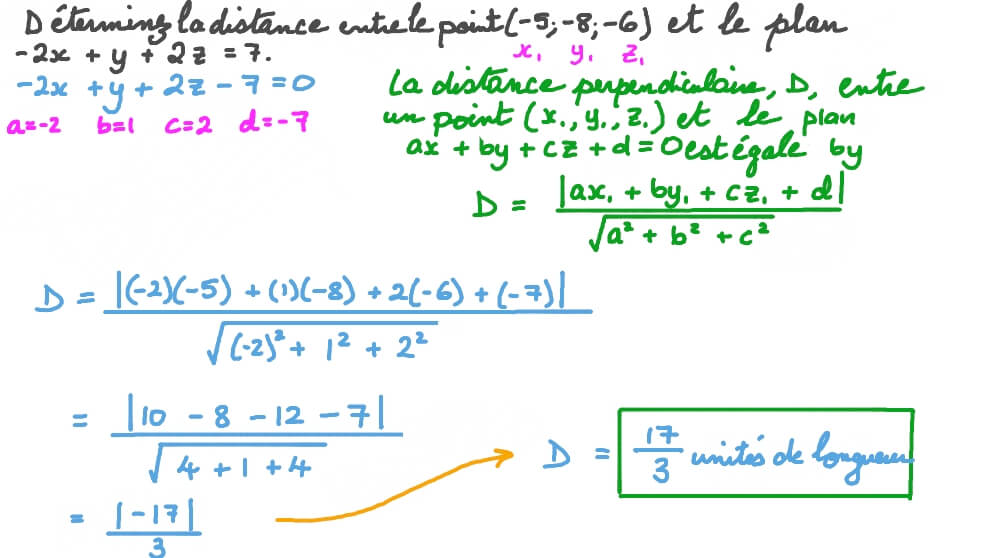 Déterminez la distance entre le point (-5; -8; -6) et le plan
-2x + y + 2z = 7.
x₁ y₁ z₁
-2x + y + 2z - 7 = 0
a=-2 b=1 c=2 d=-7
La distance perpendiculaire, D, entre
un point (x₁, y₁, z₁) et le plan
ax + by + cz + d = 0 est égale by
D = |ax₁ + by₁ + cz₁ + d| / √(a² + b² + c²)
D = |(-2)(-5) + (1)(-8) + 2(-6) + (-7)| / √((-2)² + 1² + 2²)
= |10 - 8 - 12 - 7| / √(4 + 1 + 4)
= |-17| / 3
D = 17/3 unités de longueur